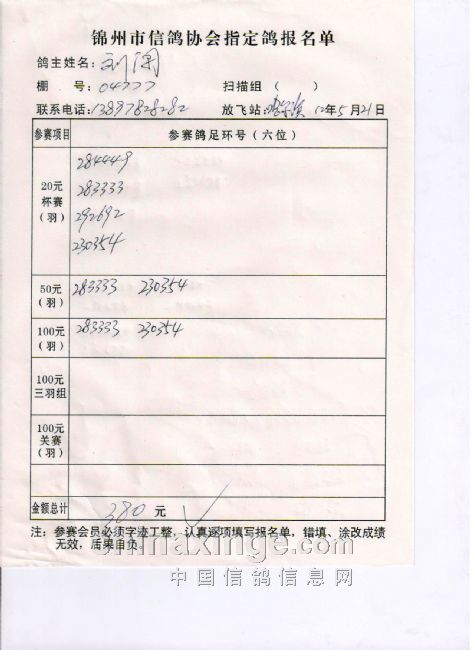 锦州市信鸽协会指定鸽报名单
鸽主姓名：刘闯
棚 号：04777 扫描组（ ）
联系电话：13897828282 放飞站： 12年5月21日
参赛项目 参赛鸽足环号（六位）
20元
杯赛
（羽）
284449
283333
292692
230354
50元
（羽）
283333 230354
100元
（羽）
283333 230354
100元
三羽组
100元
关赛
（羽）
金额总计 380 元
注：参赛会员必须字迹工整，认真逐项填写报名单，错填、涂改成绩
无效，后果自负。
chinaxinge.com
中国信鸽信息网